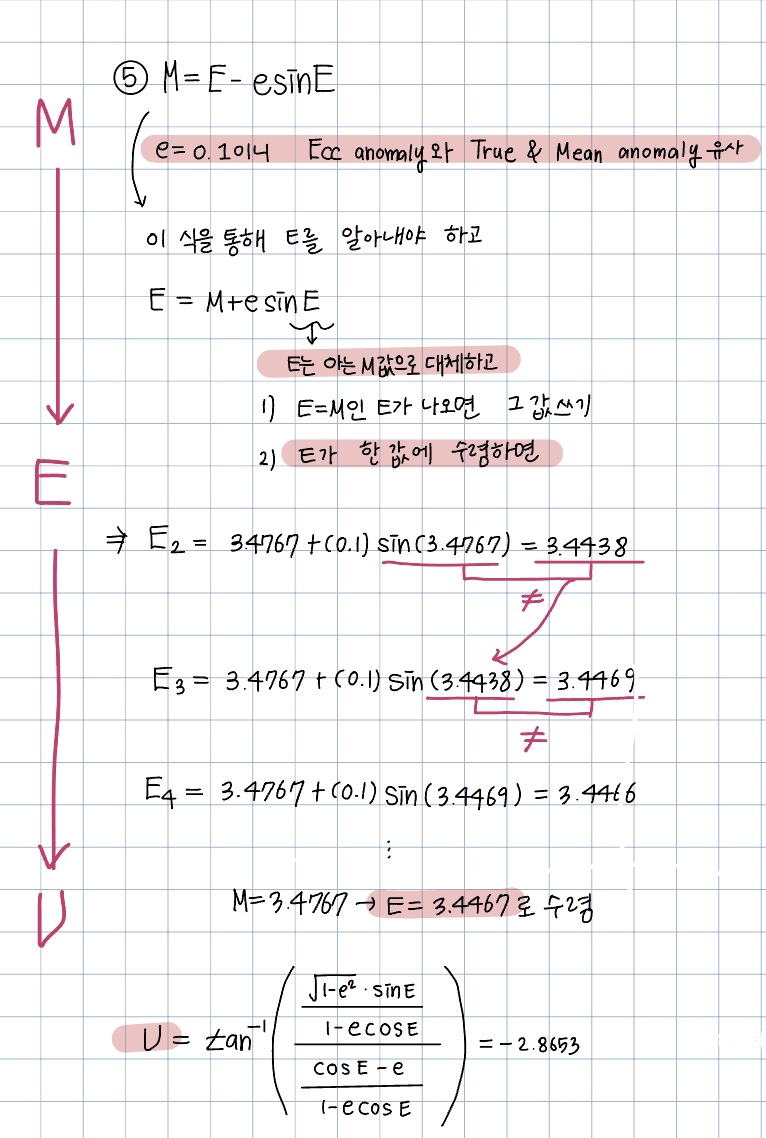 ⑤ M = E - esinE
M
e = 0.1이니 Ecc anomaly와 True & Mean anomaly 유사
이 식을 통해 E를 알아내야 하고
E = M+e sinE
E는 아는 M값으로 대체하고
1) E=M인 E가 나오면 그 값 쓰기
E
2) E가 한 값에 수렴하면
⇒ E₂ = 3.4767 + (0.1) sin(3.4767) = 3.4438
≠
E₃ = 3.4767 + (0.1) sin(3.4438) = 3.4469
≠
E₄ = 3.4767 + (0.1) sin(3.4469) = 3.4466
⋮
M=3.4767 → E = 3.4467로 수렴
υ
υ = tan⁻¹( (√(1-e²)·sinE / 1-ecosE) / (cosE-e / 1-ecosE) ) = -2.8653